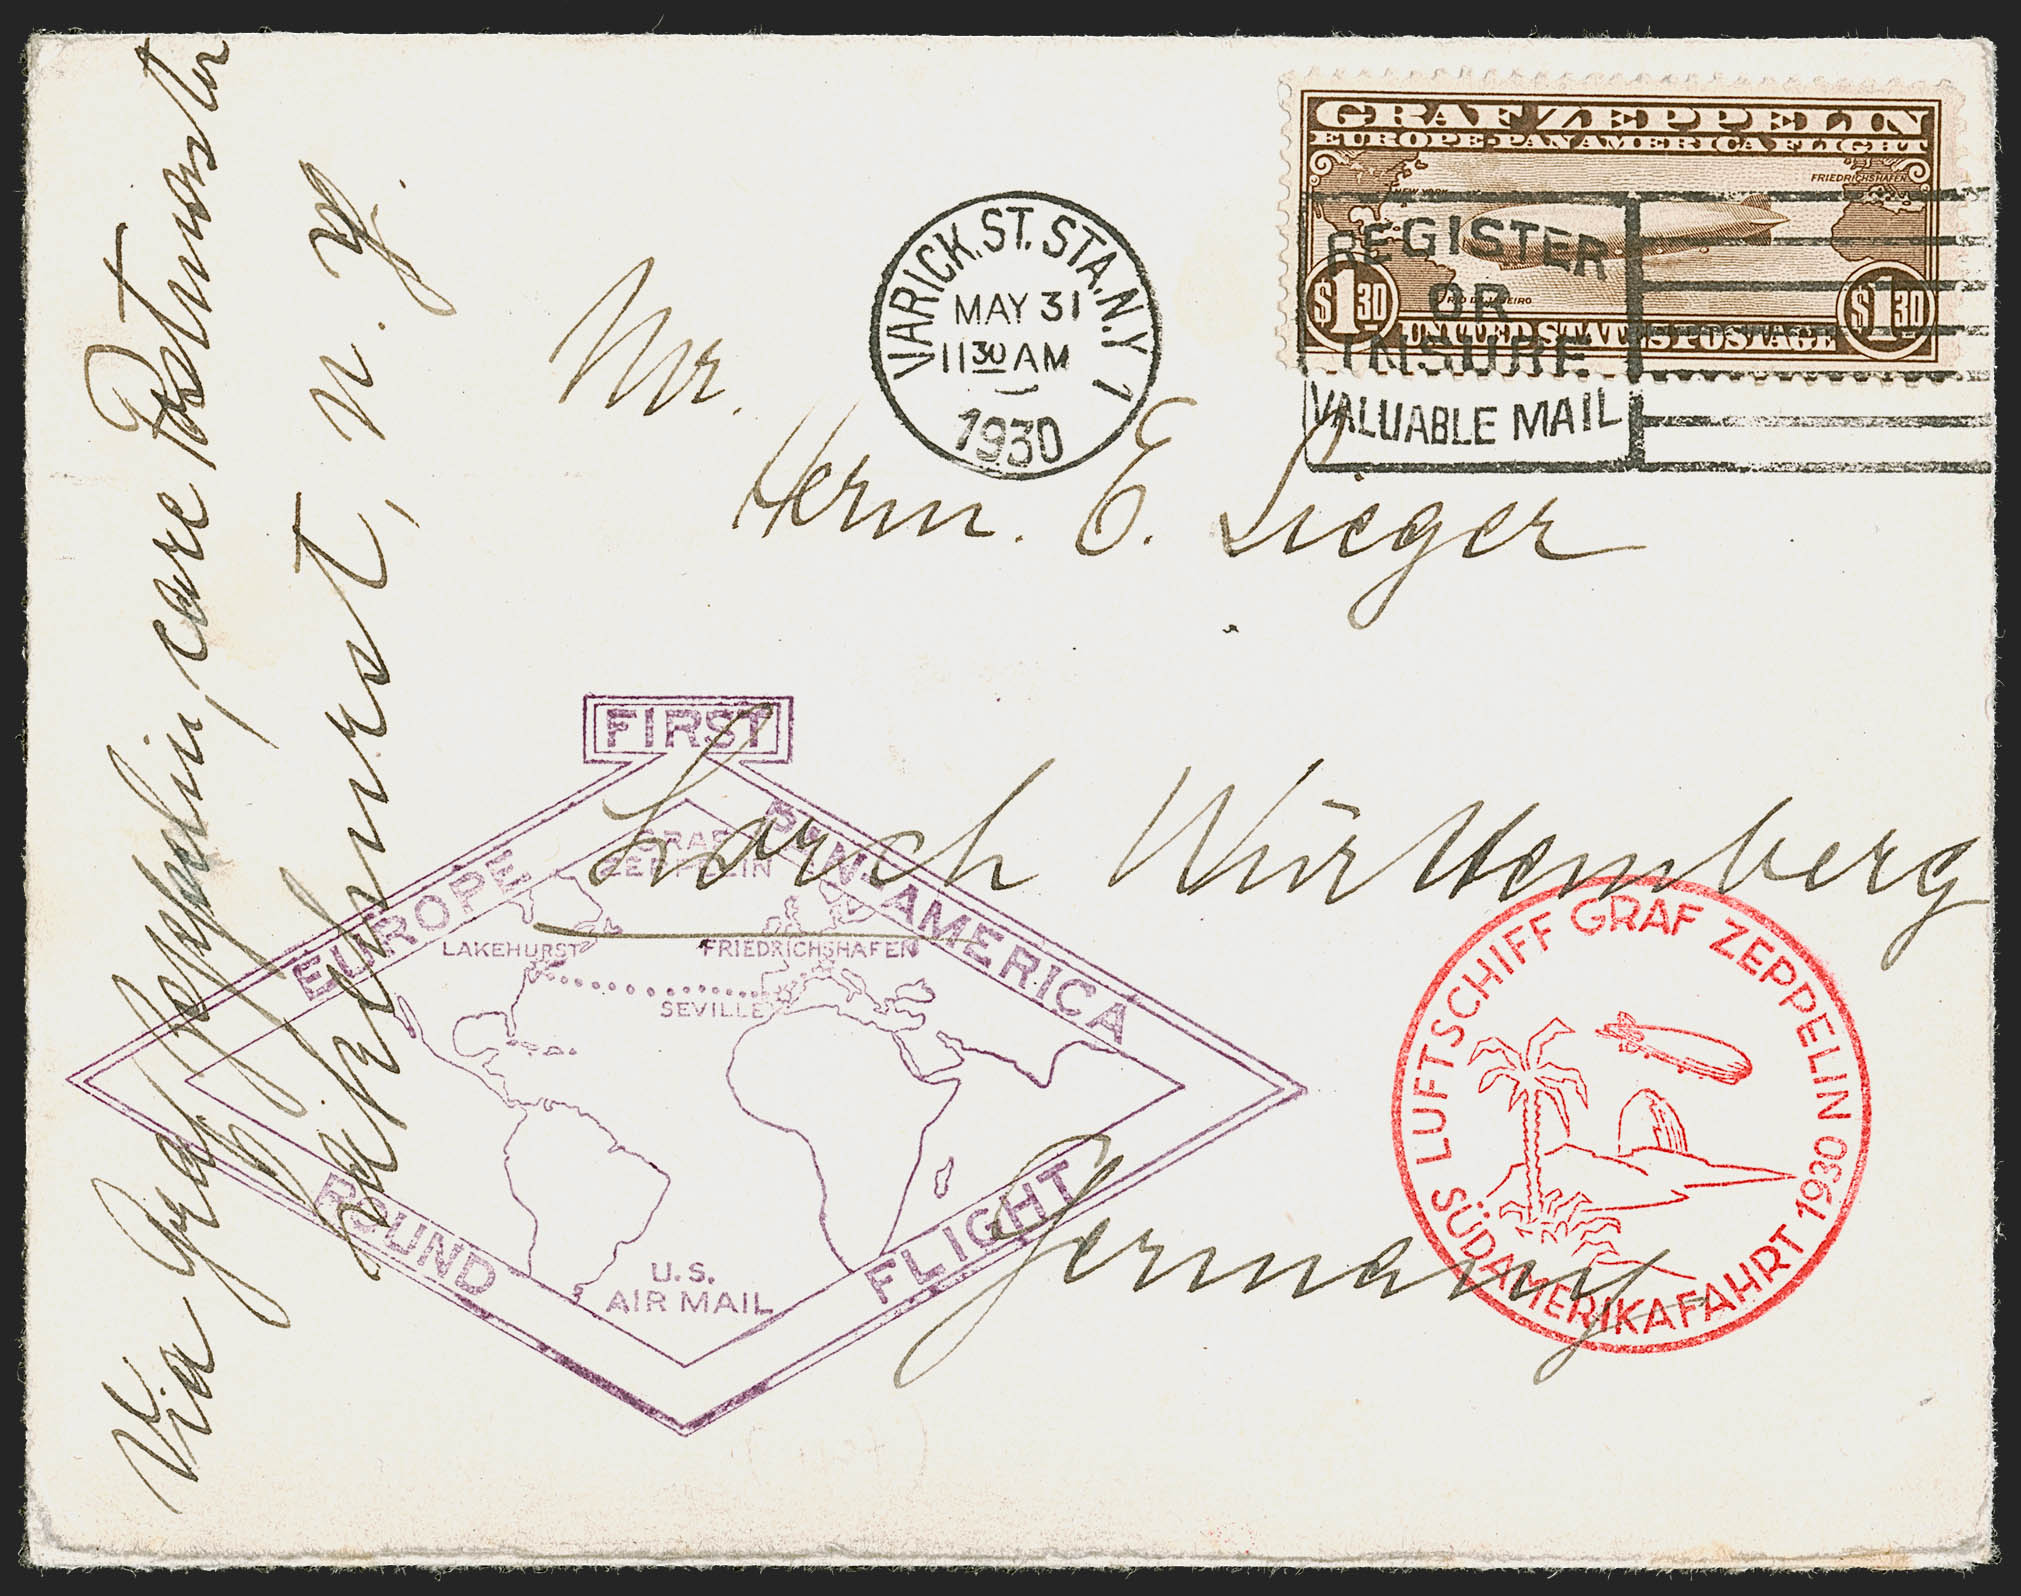 Via Graf Zeppelin, care Postmaster
Lakehurst, N. Y.
GRAF ZEPPELIN
EUROPE-PAN AMERICA FLIGHT
NEW YORK
FRIEDRICHSHAFEN
RIO DE JANEIRO
$1 30
$1 30
UNITED STATES POSTAGE
VARICK. ST. STA. N.Y. 1
MAY 31
11 30 AM
1930
REGISTER
OR
INSURE
VALUABLE MAIL
Mr.
Herm. E. Sieger
Lorch Württemberg
Germany
FIRST
EUROPE PAN-AMERICA
GRAF
ZEPPELIN
LAKEHURST
FRIEDRICHSHAFEN
SEVILLE
U.S.
AIR MAIL
ROUND FLIGHT
LUFTSCHIFF GRAF ZEPPELIN
SÜDAMERIKAFAHRT 1930